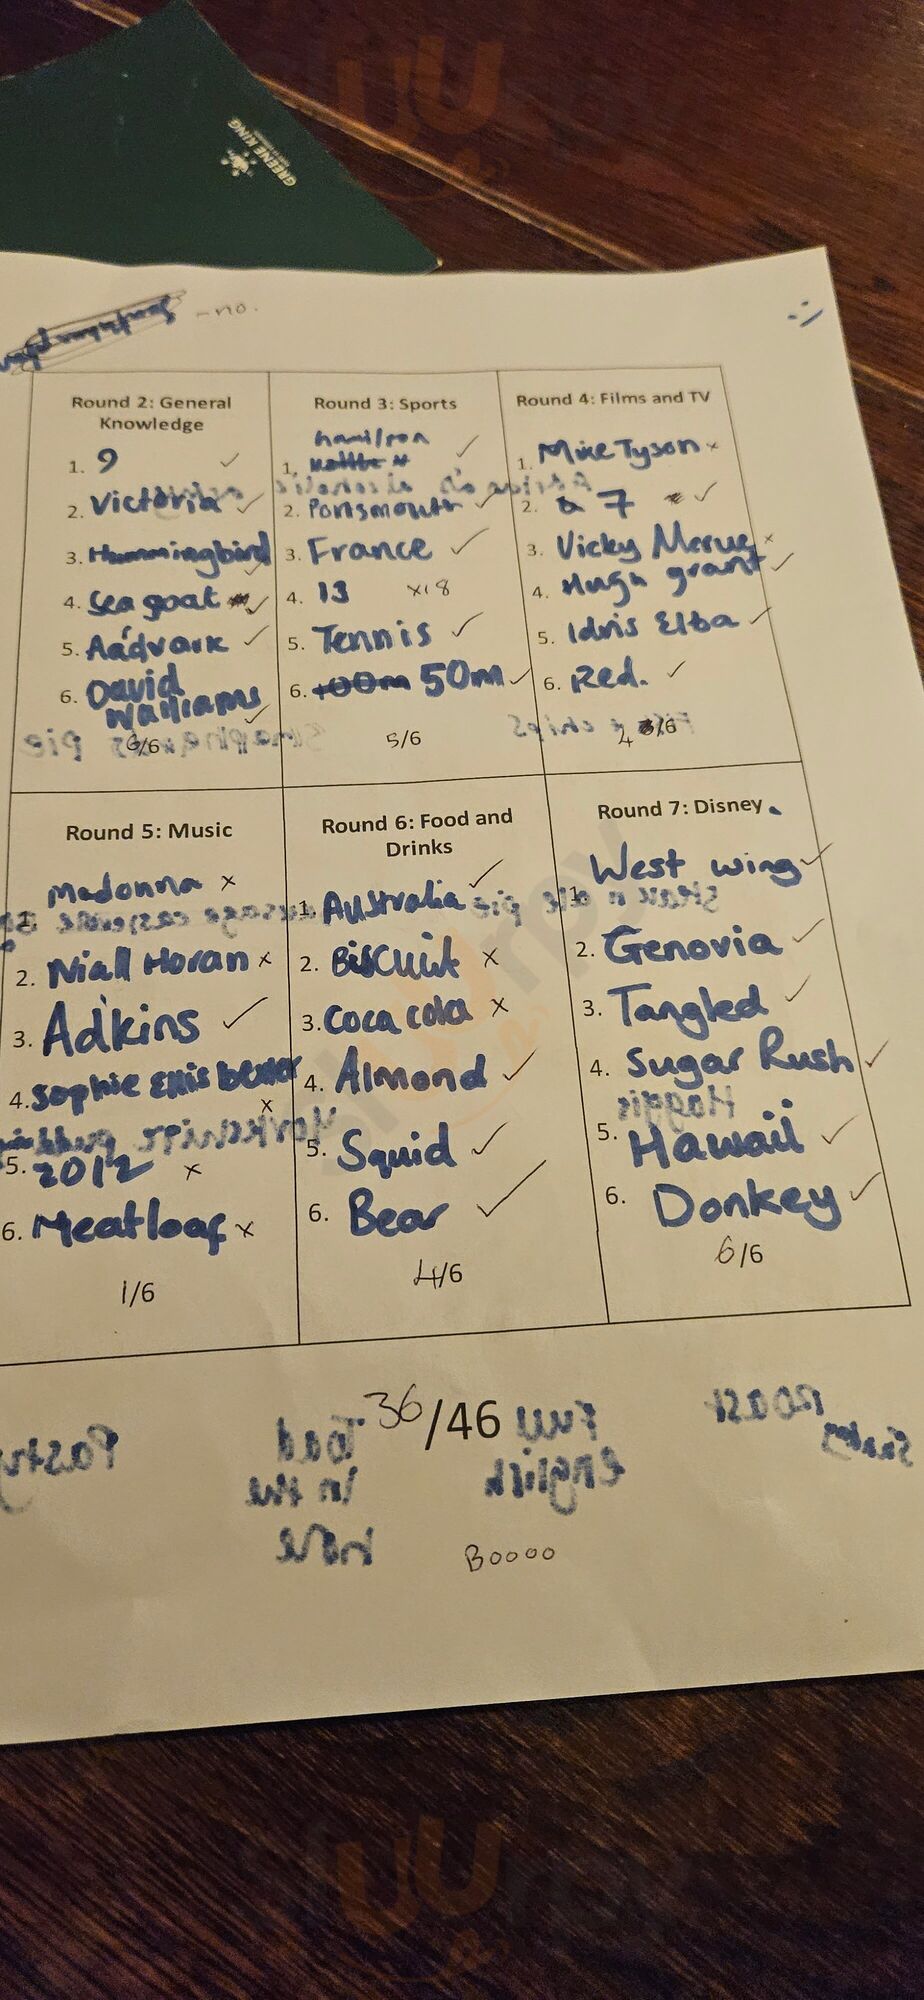 GREENE KING
- no.
:)
Round 2: General
Knowledge
1. 9 ✓
2. Victoria ✓
3. Hummingbird ✓
4. Sea goat ✓
5. Aadvark ✓
6. David
Walliams ✓
6/6
Round 3: Sports
1. hamilton ✓
2. Portsmouth ✓
3. France ✓
4. 13 x18
5. Tennis ✓
6. 100m 50m ✓
5/6
Round 4: Films and TV
1. Mike Tyson x
2. 7 ✓
3. Vicky Merue x
4. Hugh grant ✓
5. Idris Elba ✓
6. Red. ✓
4 /6
Round 5: Music
1. Madonna x
2. Niall Horan x
3. Adkins ✓
4. Sophie Ellis bexter x
5. 2012 x
6. Meatloaf x
1/6
Round 6: Food and
Drinks
1. Australia ✓
2. Biscuit x
3. Coca cola x
4. Almond ✓
5. Squid ✓
6. Bear ✓
4/6
Round 7: Disney
1. West wing ✓
2. Genovia ✓
3. Tangled ✓
4. Sugar Rush ✓
5. Hawaii ✓
6. Donkey ✓
6/6
36/46
Roast
Full
English
Toad
in the
hole
Boooo
sluurpy